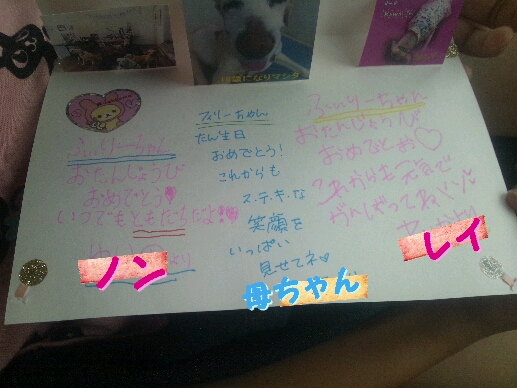 ふぃりーちゃん
おたんじょうび
おめでとう!
いつでもともだちだよ!!
より
ノン
フィリーちゃん
たん生日
おめでとう!
これからも
ステキな
笑顔を
いっぱい
見せてネ
母ちゃん
ふぃりーちゃん
おたんじょうび
おめでとぉ♡
これからも元気で
がんばってねぃ
より
レイ